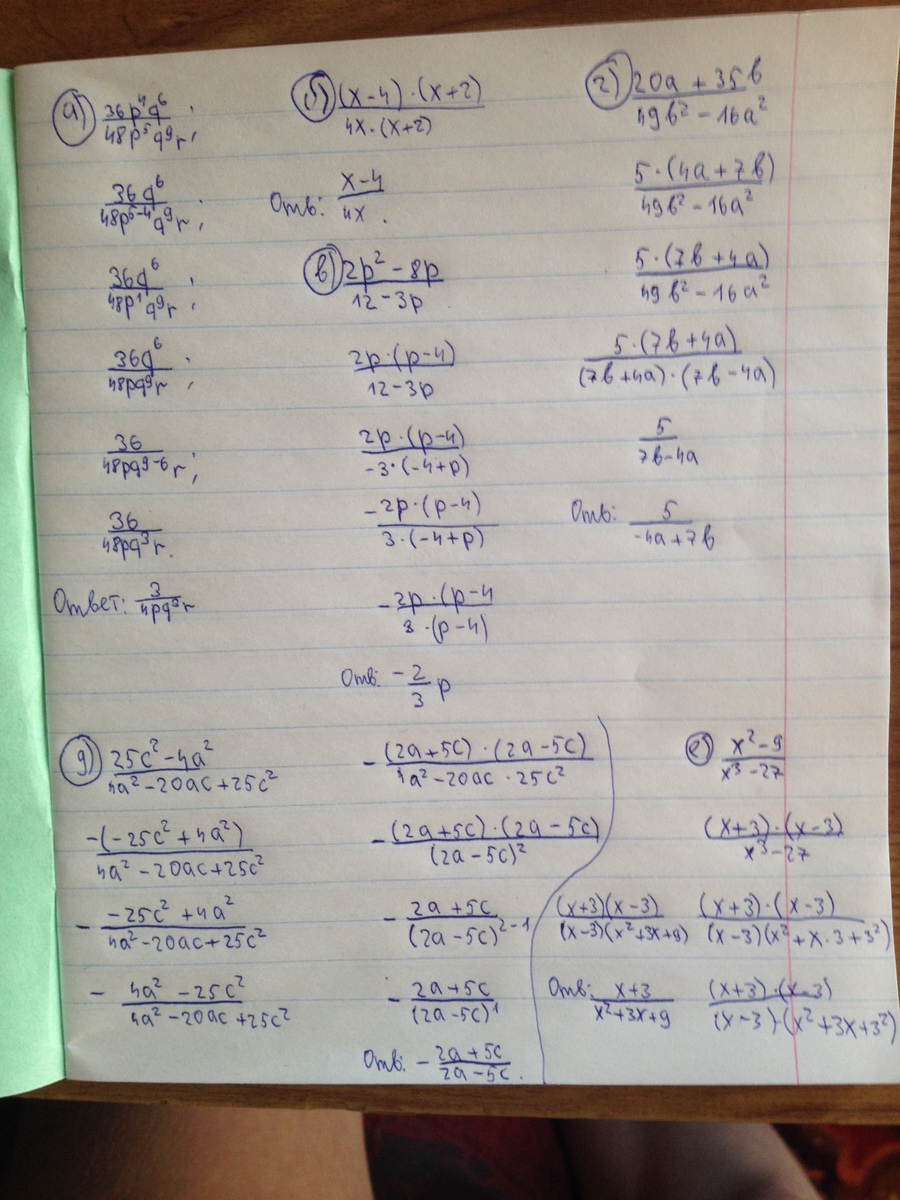 а) 36p⁴q⁶/48p⁵q⁹r;
36q⁶/48p⁵⁻⁴q⁹r;
36q⁶/48p¹q⁹r;
36q⁶/48pq⁹r;
36/48pq⁹⁻⁶r;
36/48pq³r.
Ответ: 3/4pq³r
б) (x-4)·(x+2)/4x·(x+2)
Отв: x-4/4x.
в) 2p²-8p/12-3p
2p·(p-4)/12-3p
2p·(p-4)/-3·(-4+p)
-2p·(p-4)/3·(-4+p)
-2p·(p-4/3·(p-4)
Отв: -2/3 p
г) 20a+35b/49b²-16a²
5·(4a+7b)/49b²-16a²
5·(7b+4a)/49b²-16a²
5·(7b+4a)/(7b+4a)·(7b-4a)
5/7b-4a
Отв: 5/-4a+7b
д) 25c²-4a²/4a²-20ac+25c²
-(-25c²+4a²)/4a²-20ac+25c²
- -25c²+4a²/4a²-20ac+25c²
- 4a²-25c²/4a²-20ac+25c²
- (2a+5c)·(2a-5c)/4a²-20ac·25c²
- (2a+5c)·(2a-5c)/(2a-5c)²
- 2a+5c/(2a-5c)²⁻¹
- 2a+5c/(2a-5c)¹
Отв: - 2a+5c/2a-5c.
е) x²-9/x³-27
(x+3)·(x-3)/x³-27
(x+3)·(x-3)/(x-3)(x²+x·3+3²)
(x+3)·(x-3)/(x-3)·(x²+3x+3²)
(x+3)(x-3)/(x-3)(x²+3x+9)
Отв: x+3/x²+3x+9